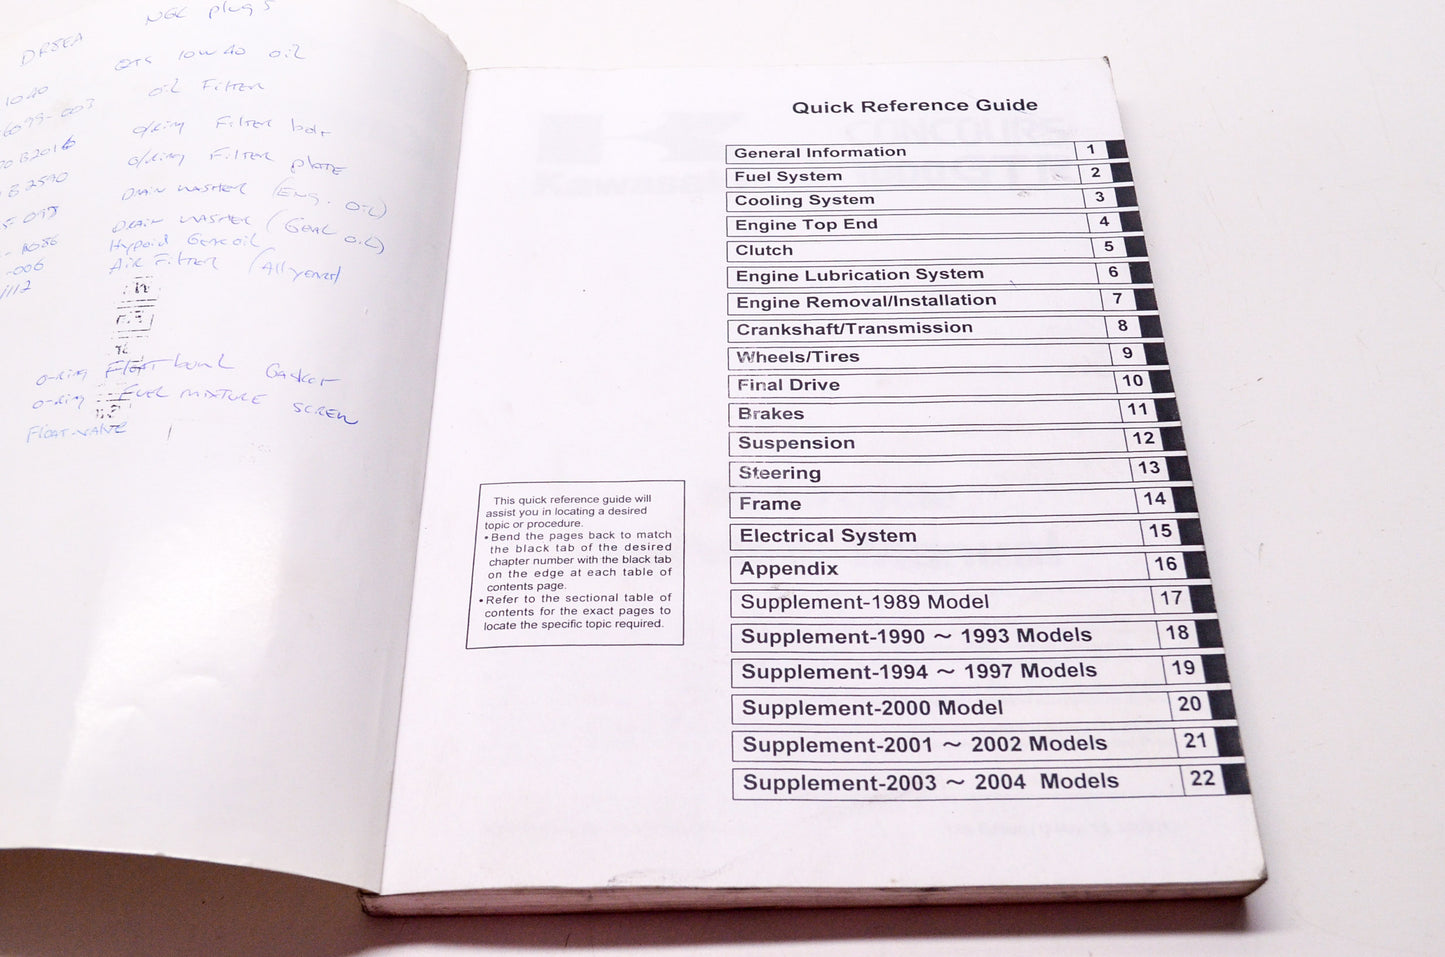 NGK plugs
DR8EA
QTS 10W40 oil
1080
oil Filter
6099-003
o/ring Filter bolt
B2016
o/ring Filter plate
B2590
Drain washer (Eng. oil)
Drain washer (Gear oil)
Hypoid Gear oil
-006
Air Filter
o-ring Float bowl Gasket
o-ring Fuel mixture screw
Float-valve
Quick Reference Guide
General Information 1
Fuel System 2
Cooling System 3
Engine Top End 4
Clutch 5
Engine Lubrication System 6
Engine Removal/Installation 7
Crankshaft/Transmission 8
Wheels/Tires 9
Final Drive 10
Brakes 11
Suspension 12
Steering 13
Frame 14
Electrical System 15
Appendix 16
Supplement-1989 Model 17
Supplement-1990 ~ 1993 Models 18
Supplement-1994 ~ 1997 Models 19
Supplement-2000 Model 20
Supplement-2001 ~ 2002 Models 21
Supplement-2003 ~ 2004 Models 22
This quick reference guide will
assist you in locating a desired
topic or procedure.
•Bend the pages back to match
the black tab of the desired
chapter number with the black tab
on the edge at each table of
contents page.
•Refer to the sectional table of
contents for the exact pages to
locate the specific topic required.